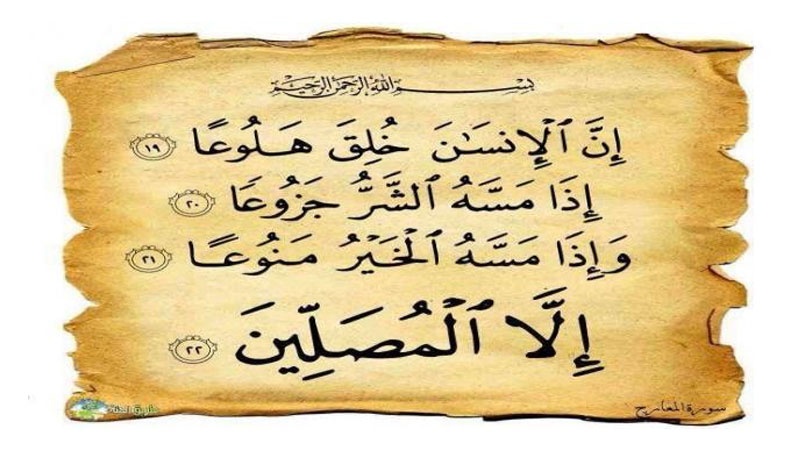 بِسْمِ اللَّهِ الرَّحْمَٰنِ الرَّحِيمِ
إِنَّ ٱلْإِنسَـٰنَ خُلِقَ هَلُوعًا ١٩
إِذَا مَسَّهُ ٱلشَّرُّ جَزُوعًا ٢٠
وَإِذَا مَسَّهُ ٱلْخَيْرُ مَنُوعًا ٢١
إِلَّا ٱلْمُصَلِّينَ ٢٢
سورة المعارج